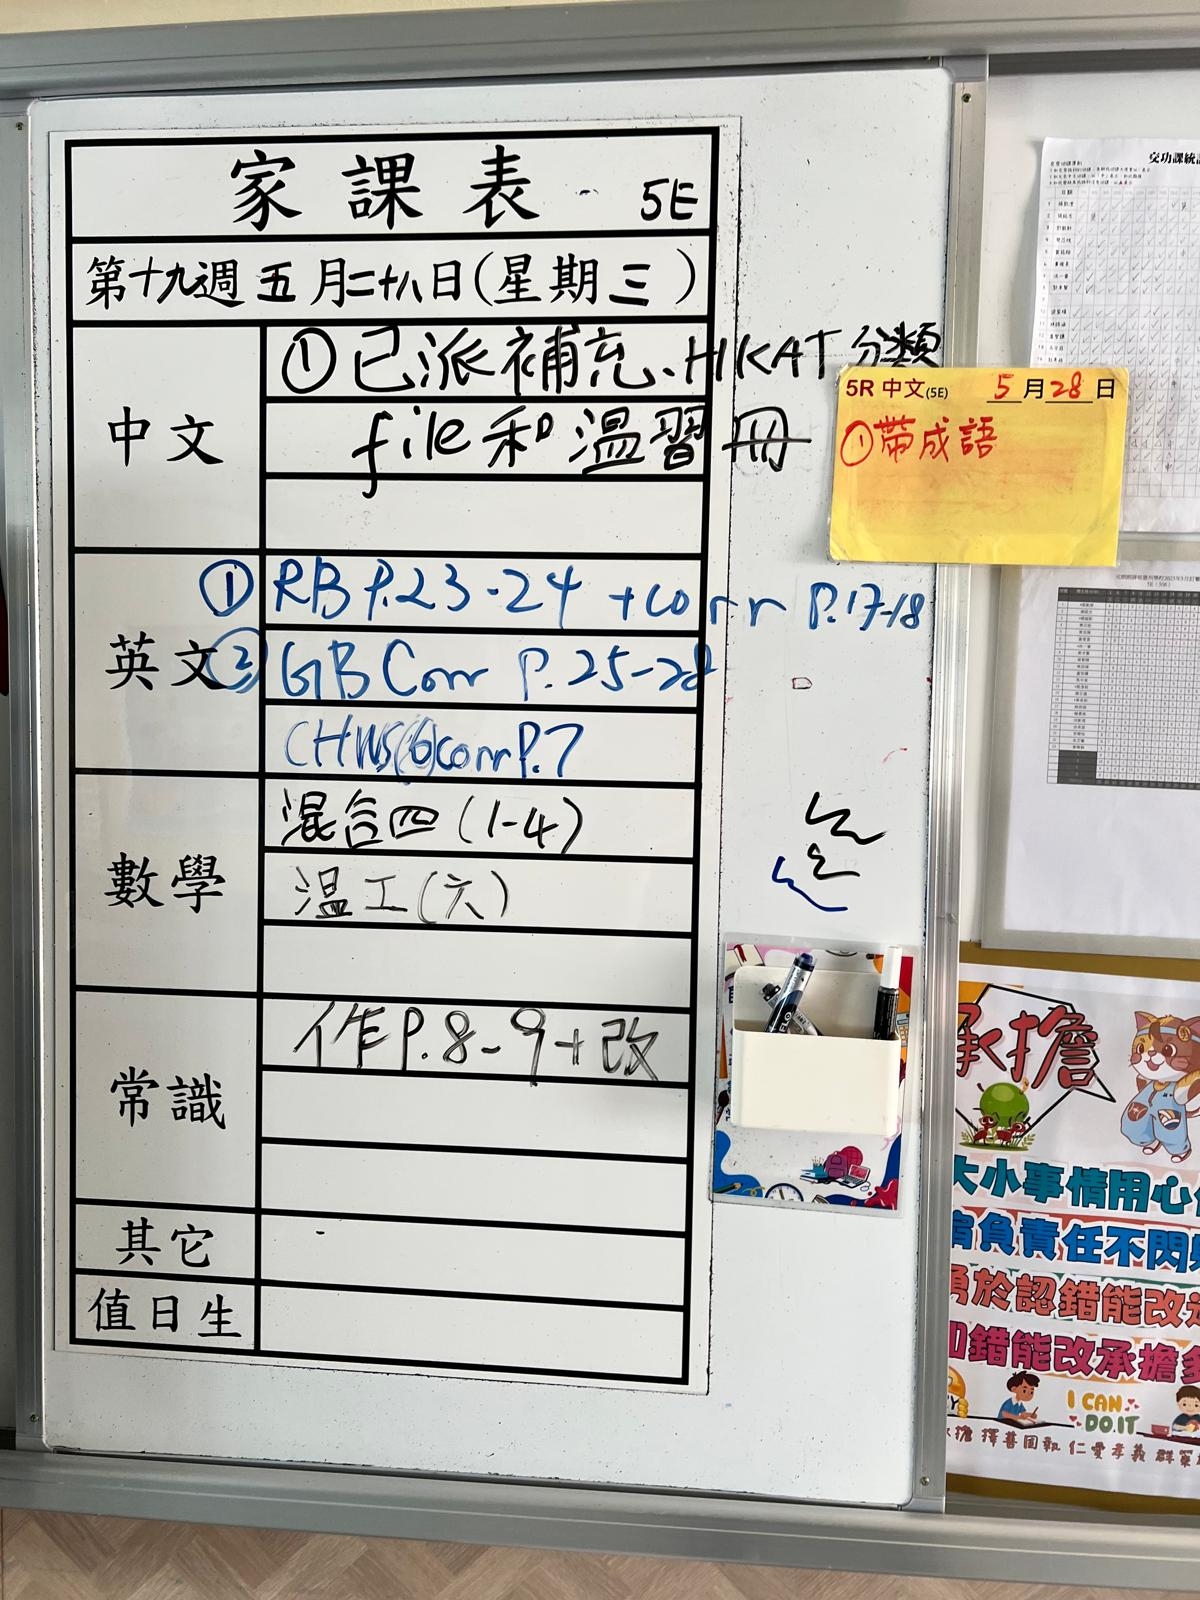 家課表 5E
第十九週五月二十八日(星期三)
中文
①已派補充、HKAT分類
file和溫習冊
5R 中文(5E) 5月28日
①帶成語
英文
①RB P.23-24 +corr P.17-18
②GB Corr P.25-28
CHWS(6)corr P.7
數學
混合四(1-4)
温工(六)
常識
作P.8-9+改
其它
值日生
交功課統
承擔
大小事情用心
肩負責任不閃
勇於認錯能改
知錯能改承擔多
I CAN
DO IT
擇善固執 仁愛孝義